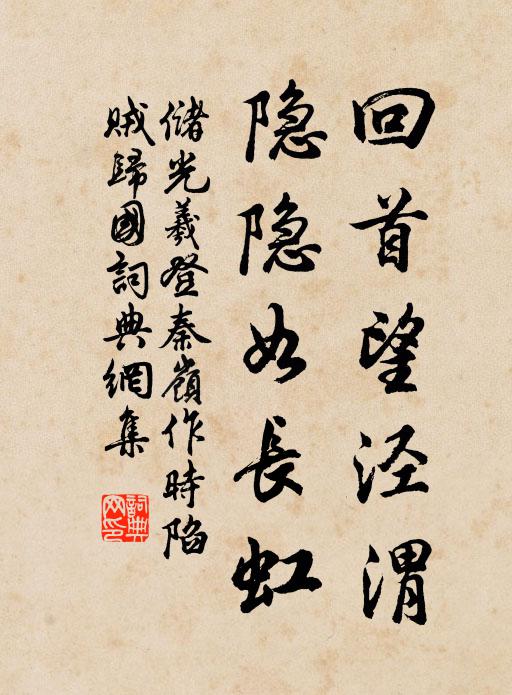 回首望泾渭
隐隐如長虹
儲光羲登秦嶺作時陷
賊歸國詞典網集
詞典
网印